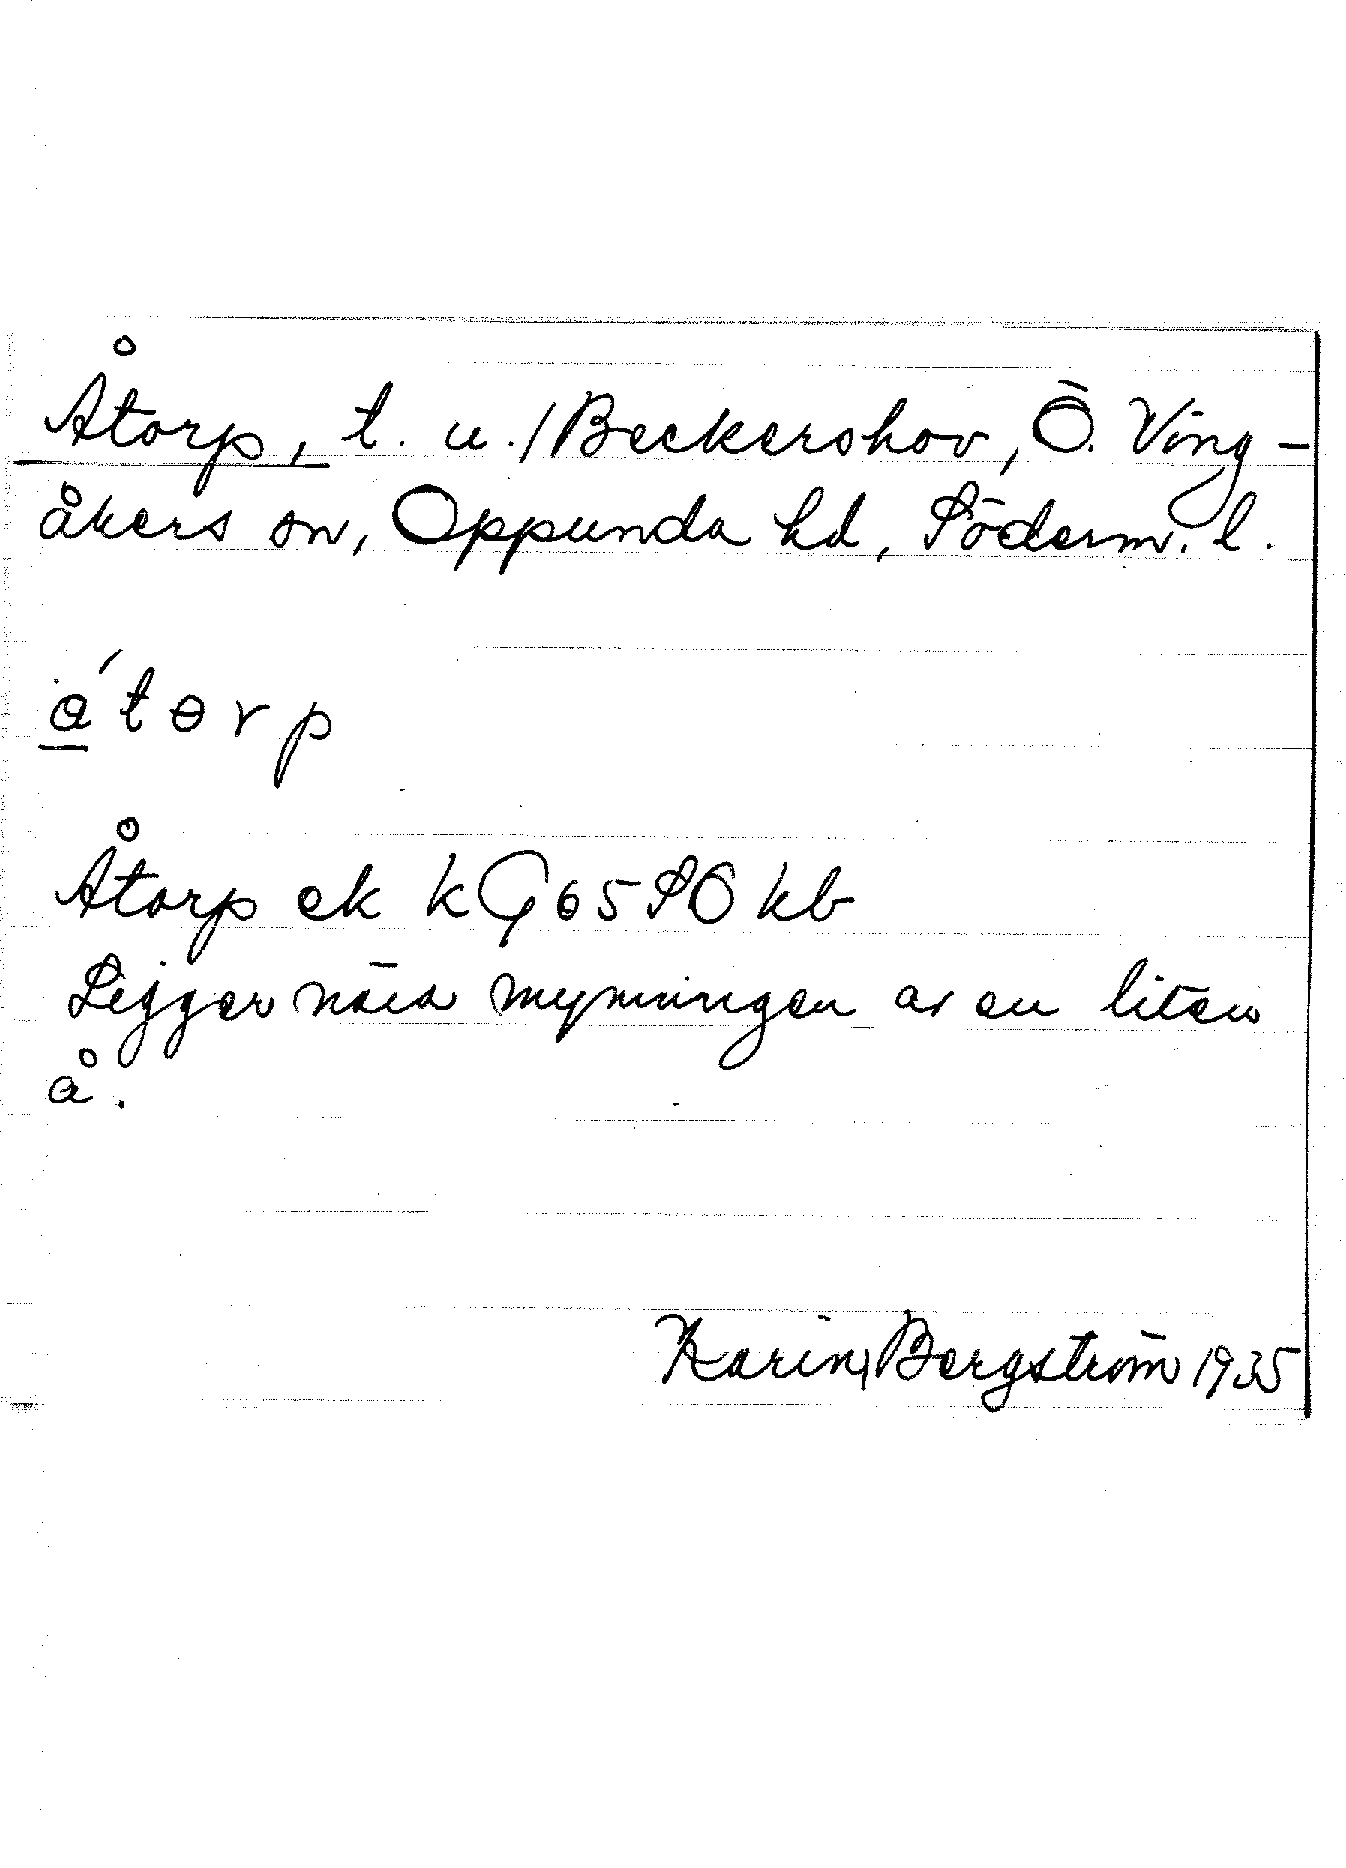 Åtorp, t. u./Beckershov, Ö. Ving-
åkers sn, Oppunda hd, Söderm. l.
a´tɵrp
Åtorp ek k G 65 SO kb
Ligger nära mynningen av en liten
å.
Karin Bergström 1935